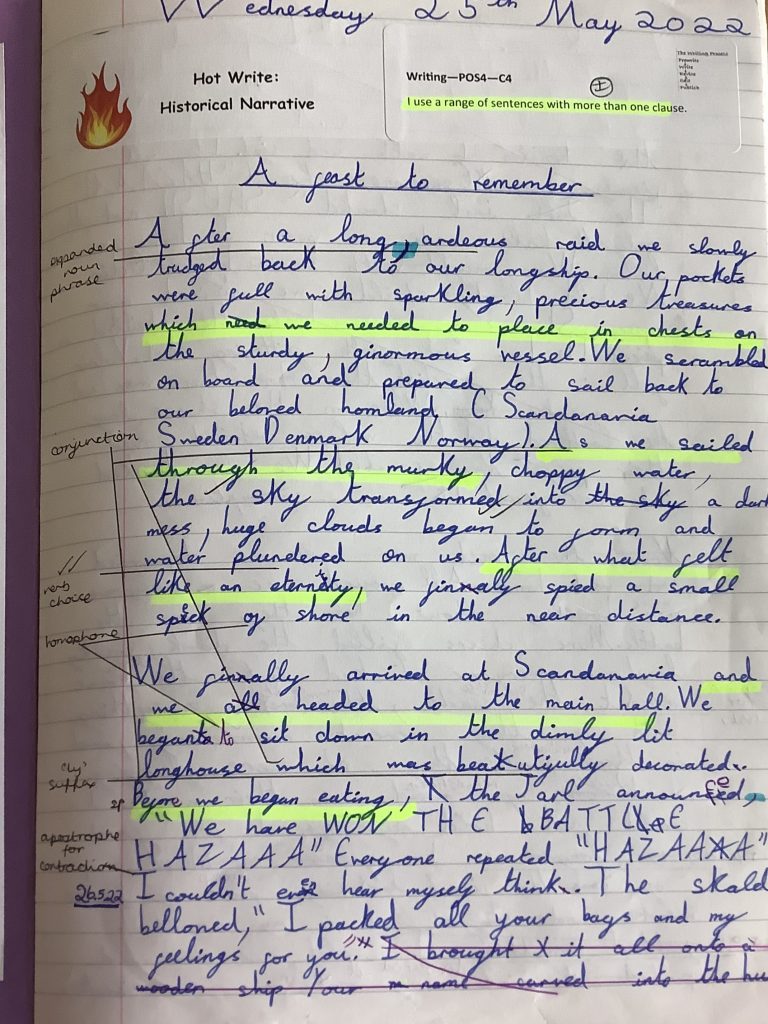 Wednesday 25th May 2022
Hot Write:
Historical Narrative
Writing—POS4—C4
I use a range of sentences with more than one clause.
The Writing Process
Prewrite
Write
Revise
Edit
Publish
I
A feast to remember
After a long, ardeous raid we slowly
expanded noun phrase
trudged back to our longship. Our pockets
were full with sparkling, precious treasures
which need we needed to place in chests on
the sturdy, ginormous vessel. We scrambled
on board and prepared to sail back to
our beloved homland (Scandanavia
conjunction
Sweden Denmark Norway). As we sailed
through the murky, choppy water,
the sky transformed into the sky a dark
ness, huge clouds began to form and
water plundered on us. After what felt
verb choice
like an eternity, we finnally spied a small
speck of shore in the near distance.
homophone
We finnally arrived at Scandanavia and
we all headed to the main hall. We
began to sit down in the dimly lit
longhouse which was beautifully decorated.
'ly' suffix
sp
Before we began eating, the Jarl announced,
"We have WON THE BATTLE
apostrophe for contraction
HAZAAA" Everyone repeated "HAZAAAA"
26.5.22
I couldn't even hear myself think. The skald
belloned, "I packed all your bags and my
feelings for you." I brought it all onto a
wooden ship Your name carved into the hu